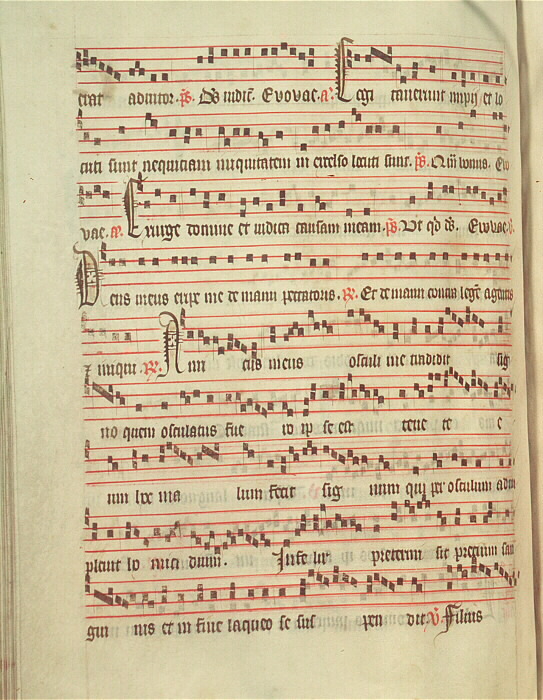 erat adiutor. ps. Ds iudiciū. Evovae. a. Cogi taverunt impij et lo
cuti sunt nequitiam iniquitatem in excelso locuti sunt. ps. Qm bonus. Evo
vae. a. Exurge domine et iudica causam meam. ps. Ut qd ds. Evovae. v.
Deus meus eripe me de manu peccatoris. R. Et de manu contra legē agentis
z iniqui. R. Ami cus meus osculi me tradidit sig
no quem osculatus fue ro ip se est tene te e
um hoc ma lum fecit sig num qui per osculum adim
plevit ho mici dium. Infe lix preterm sit precium san
gui nis et in fine laqueo se sus pen dit. v. Filius